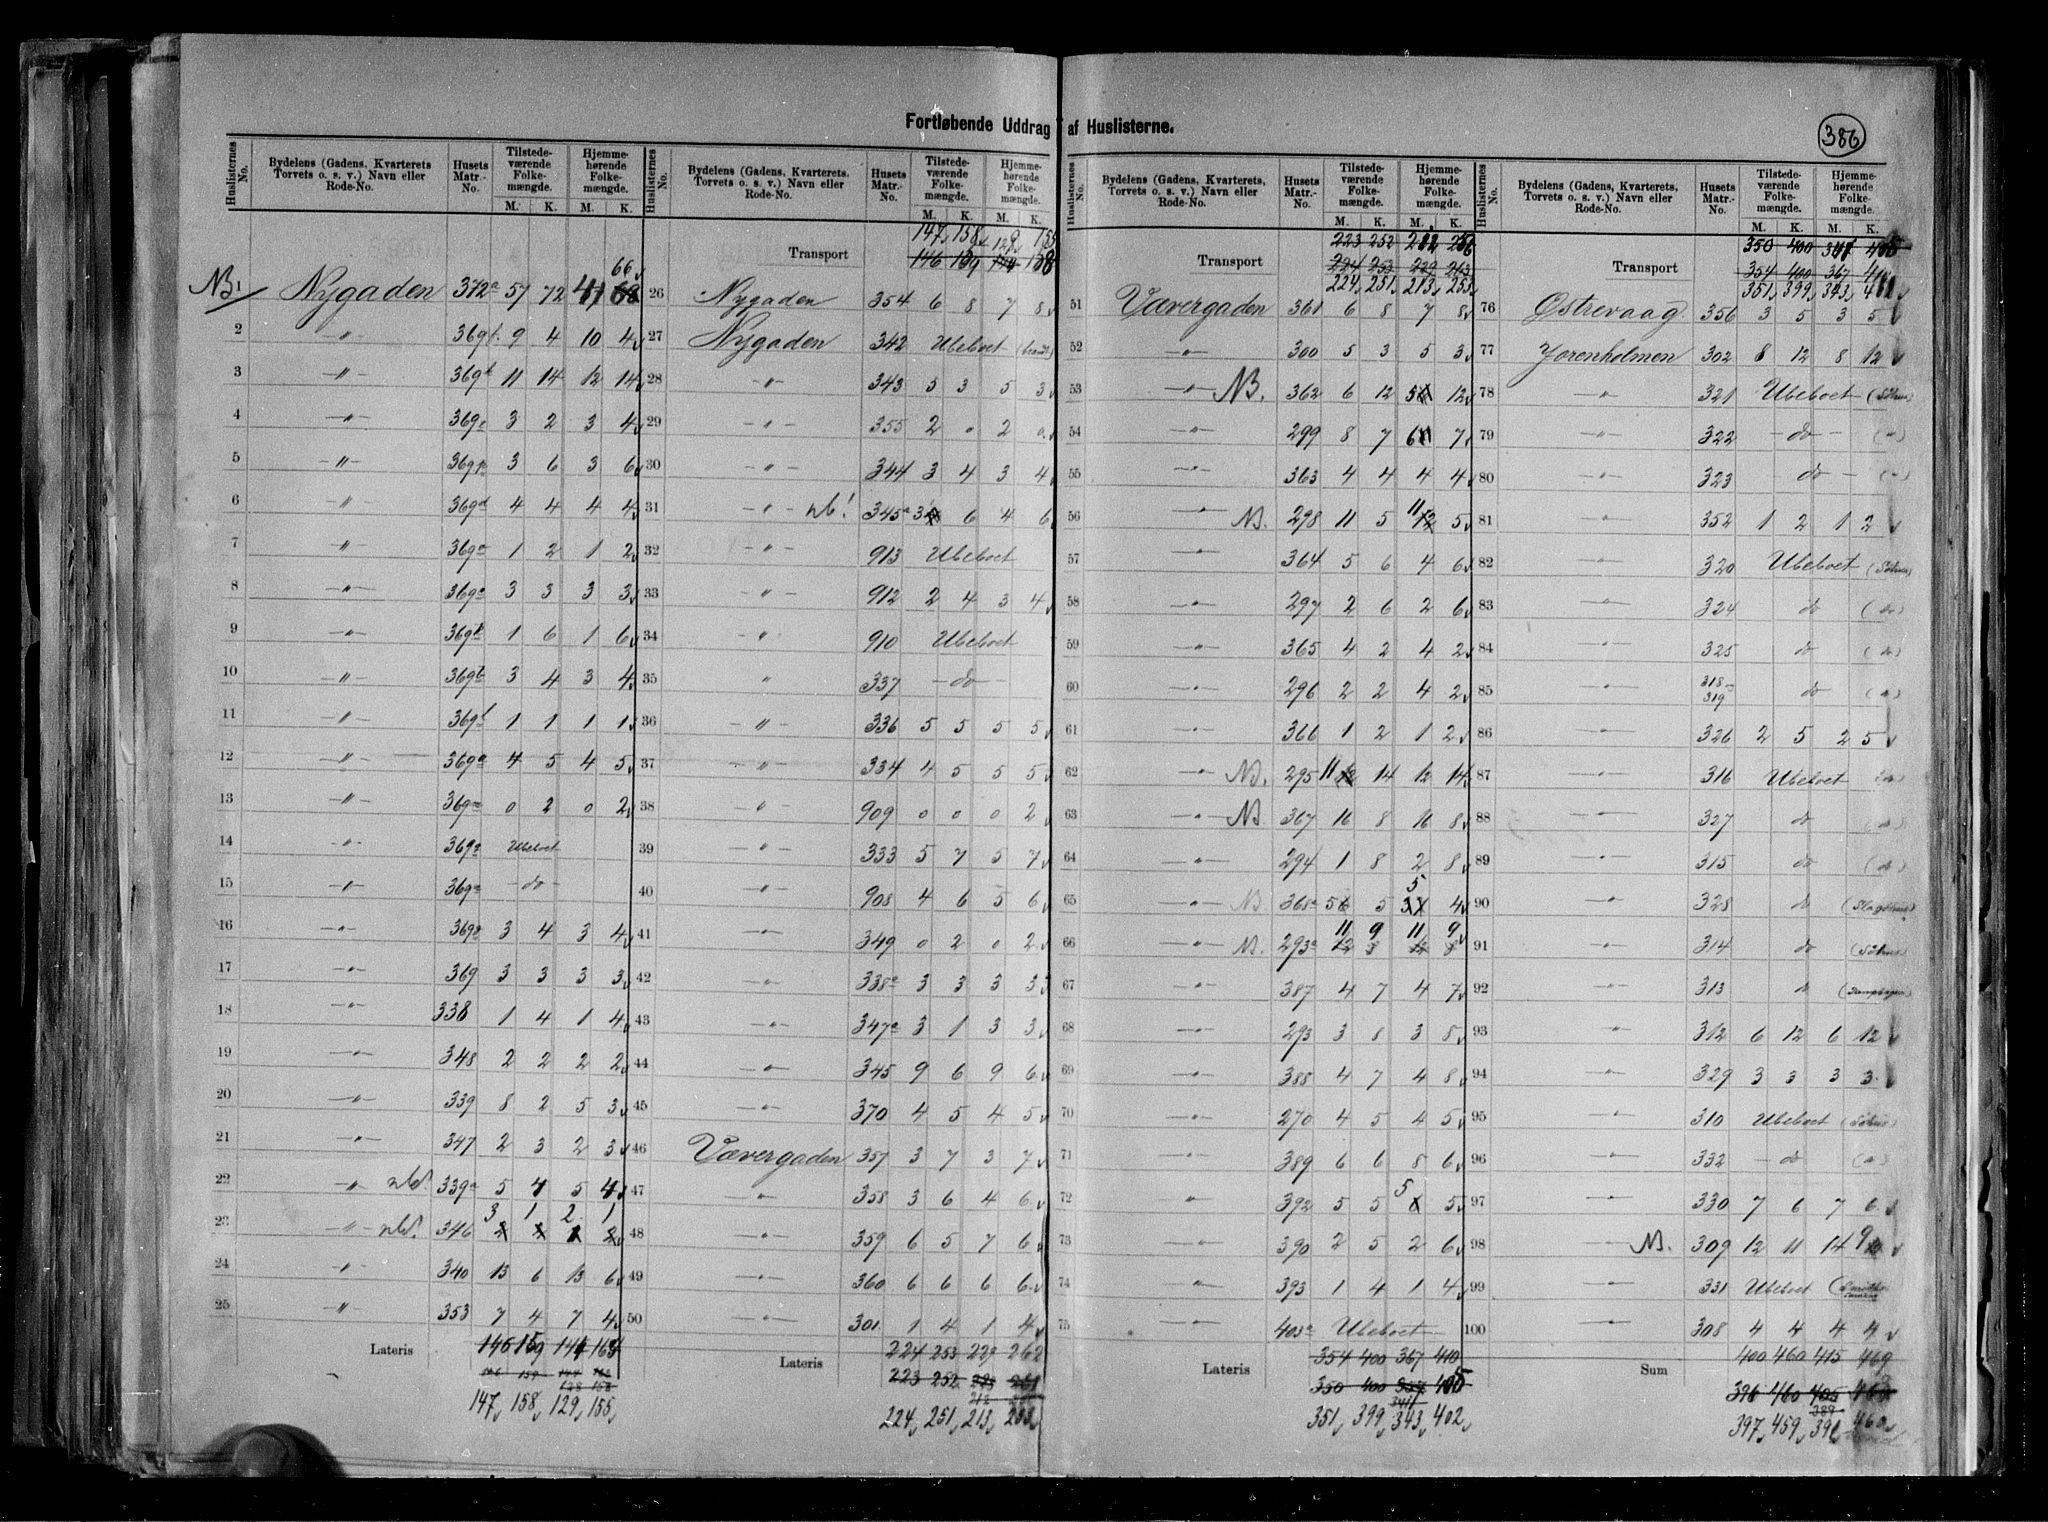 Fortløbende Uddrag af Huslisterne.
386
Huslisternes No. | Bydelens (Gadens, Kvarterets Torvets o. s. v.) Navn eller Rode-No. | Husets Matr.-No. | Tilstedeværende Folkemængde. M. K. | Hjemmehørende Folkemængde. M. K.
NB 1 Nygaden 372a 57 72 41 66
2 " 369 9 4 10 4
3 " 369 11 14 12 14
4 " 369 3 2 3 4
5 " 369 3 6 3 6
6 " 369d 4 4 4 4
7 " 369 1 2 1 2
8 " 369 3 3 3 3
9 " 369 1 6 1 6
10 " 369 3 4 3 4
11 " 369 1 1 1 1
12 " 369 4 5 4 5
13 " 369 0 2 0 2
14 " 369 Ubeboet
15 " 369 do
16 " 369 3 4 3 4
17 " 369 3 3 3 3
18 " 338 1 4 1 4
19 " 348 2 2 2 2
20 339 8 2 5 3
21 " 347 2 3 2 3
22 " nb! 339a 5 4 5 4
23 " nb! 346 3 1 2 1
24 " 340 13 6 13 6
25 " 353 7 4 7 4
Lateris 146 159 144 164
147 158 129 155
Transport 147 158 129 155
146 159 138
26 Nygaden 354 6 8 7 8
27 Nygaden 342 Ubeboet
28 " 343 5 3 5 3
29 " 355 2 0 2 0
30 " 344 3 4 3 4
31 " nb! 345a 3 6 4 6
32 " 913 Ubeboet
33 " 912 2 4 3 4
34 " 910 Ubeboet
35 " 337 do
36 " 336 5 5 5 5
37 " 334 4 5 5 5
38 " 909 0 0 0 2
39 " 333 5 7 5 7
40 " 908 4 6 5 6
41 " 349 0 2 0 2
42 " 338a 3 3 3 3
43 " 347a 3 1 3 3
44 " 345 9 6 9 6
45 " 370 4 5 4 5
46 Vævergaden 357 3 7 3 7
47 " 358 3 6 4 6
48 " 359 6 5 7 6
49 " 360 6 6 6 6
50 " 301 1 4 1 4
Lateris 224 253 229 262
223 252
212
224 251 213 253
Transport 223 252 212 256
224 253 229 263
224 251 213 253
51 Vævergaden 361 6 8 7 8
52 " 300 5 3 5 3
53 " NB. 362 6 12 5 12
54 " 299 8 7 6 7
55 " 363 4 4 4 4
56 " NB. 298 11 5 11 5
57 " 364 5 6 4 6
58 " 297 2 6 2 6
59 " 365 4 2 4 2
60 " 296 2 2 4 2
61 " 366 1 2 1 2
62 " NB. 295 11 14 12 14
63 " NB 367 16 8 16 8
64 " 294 1 8 2 8
65 " NB. 368a 5 5 5 4
66 " NB. 293a 11 9 11 9
67 " 387 4 7 4 7
68 " 293 3 8 3 8
69 " 388 4 7 4 8
70 " 270 4 5 4 5
71 " 389 6 6 8 6
72 " 392 5 5 5 5
73 " 390 2 5 2 6
74 " 393 1 4 1 4
75 " 403a Ubeboet
Lateris 354 400 367 410
350 400 357 405
351 399 343 402
Transport 350 400
354 400 367
351 399 343
76 Østrevaag 356 3 5 3 5
77 Jorenholmen 302 8 12 8 12
78 " 321 Ubeboet
79 " 322 do
80 " 323 do
81 " 352 1 2 1 2
82 " 320 Ubeboet
83 " 324 do (do)
84 " 325 do (do)
85 " 318-319 do
86 " 326 2 5 2 5
87 " 316 Ubeboet
88 " 327 do (do)
89 " 315 do (do)
90 " 328 do
91 " 314 do
92 " 313 do
93 " 312 6 12 6 12
94 " 329 3 3 3 3
95 " 310 Ubeboet
96 " 332 do
97 " 330 7 6 7 6
98 " NB. 309 12 11 14 9
99 " 331 Ubeboet
100 " 308 4 4 4 4
Sum 400 460 415 469
396 460 405
389
397 459 391 460